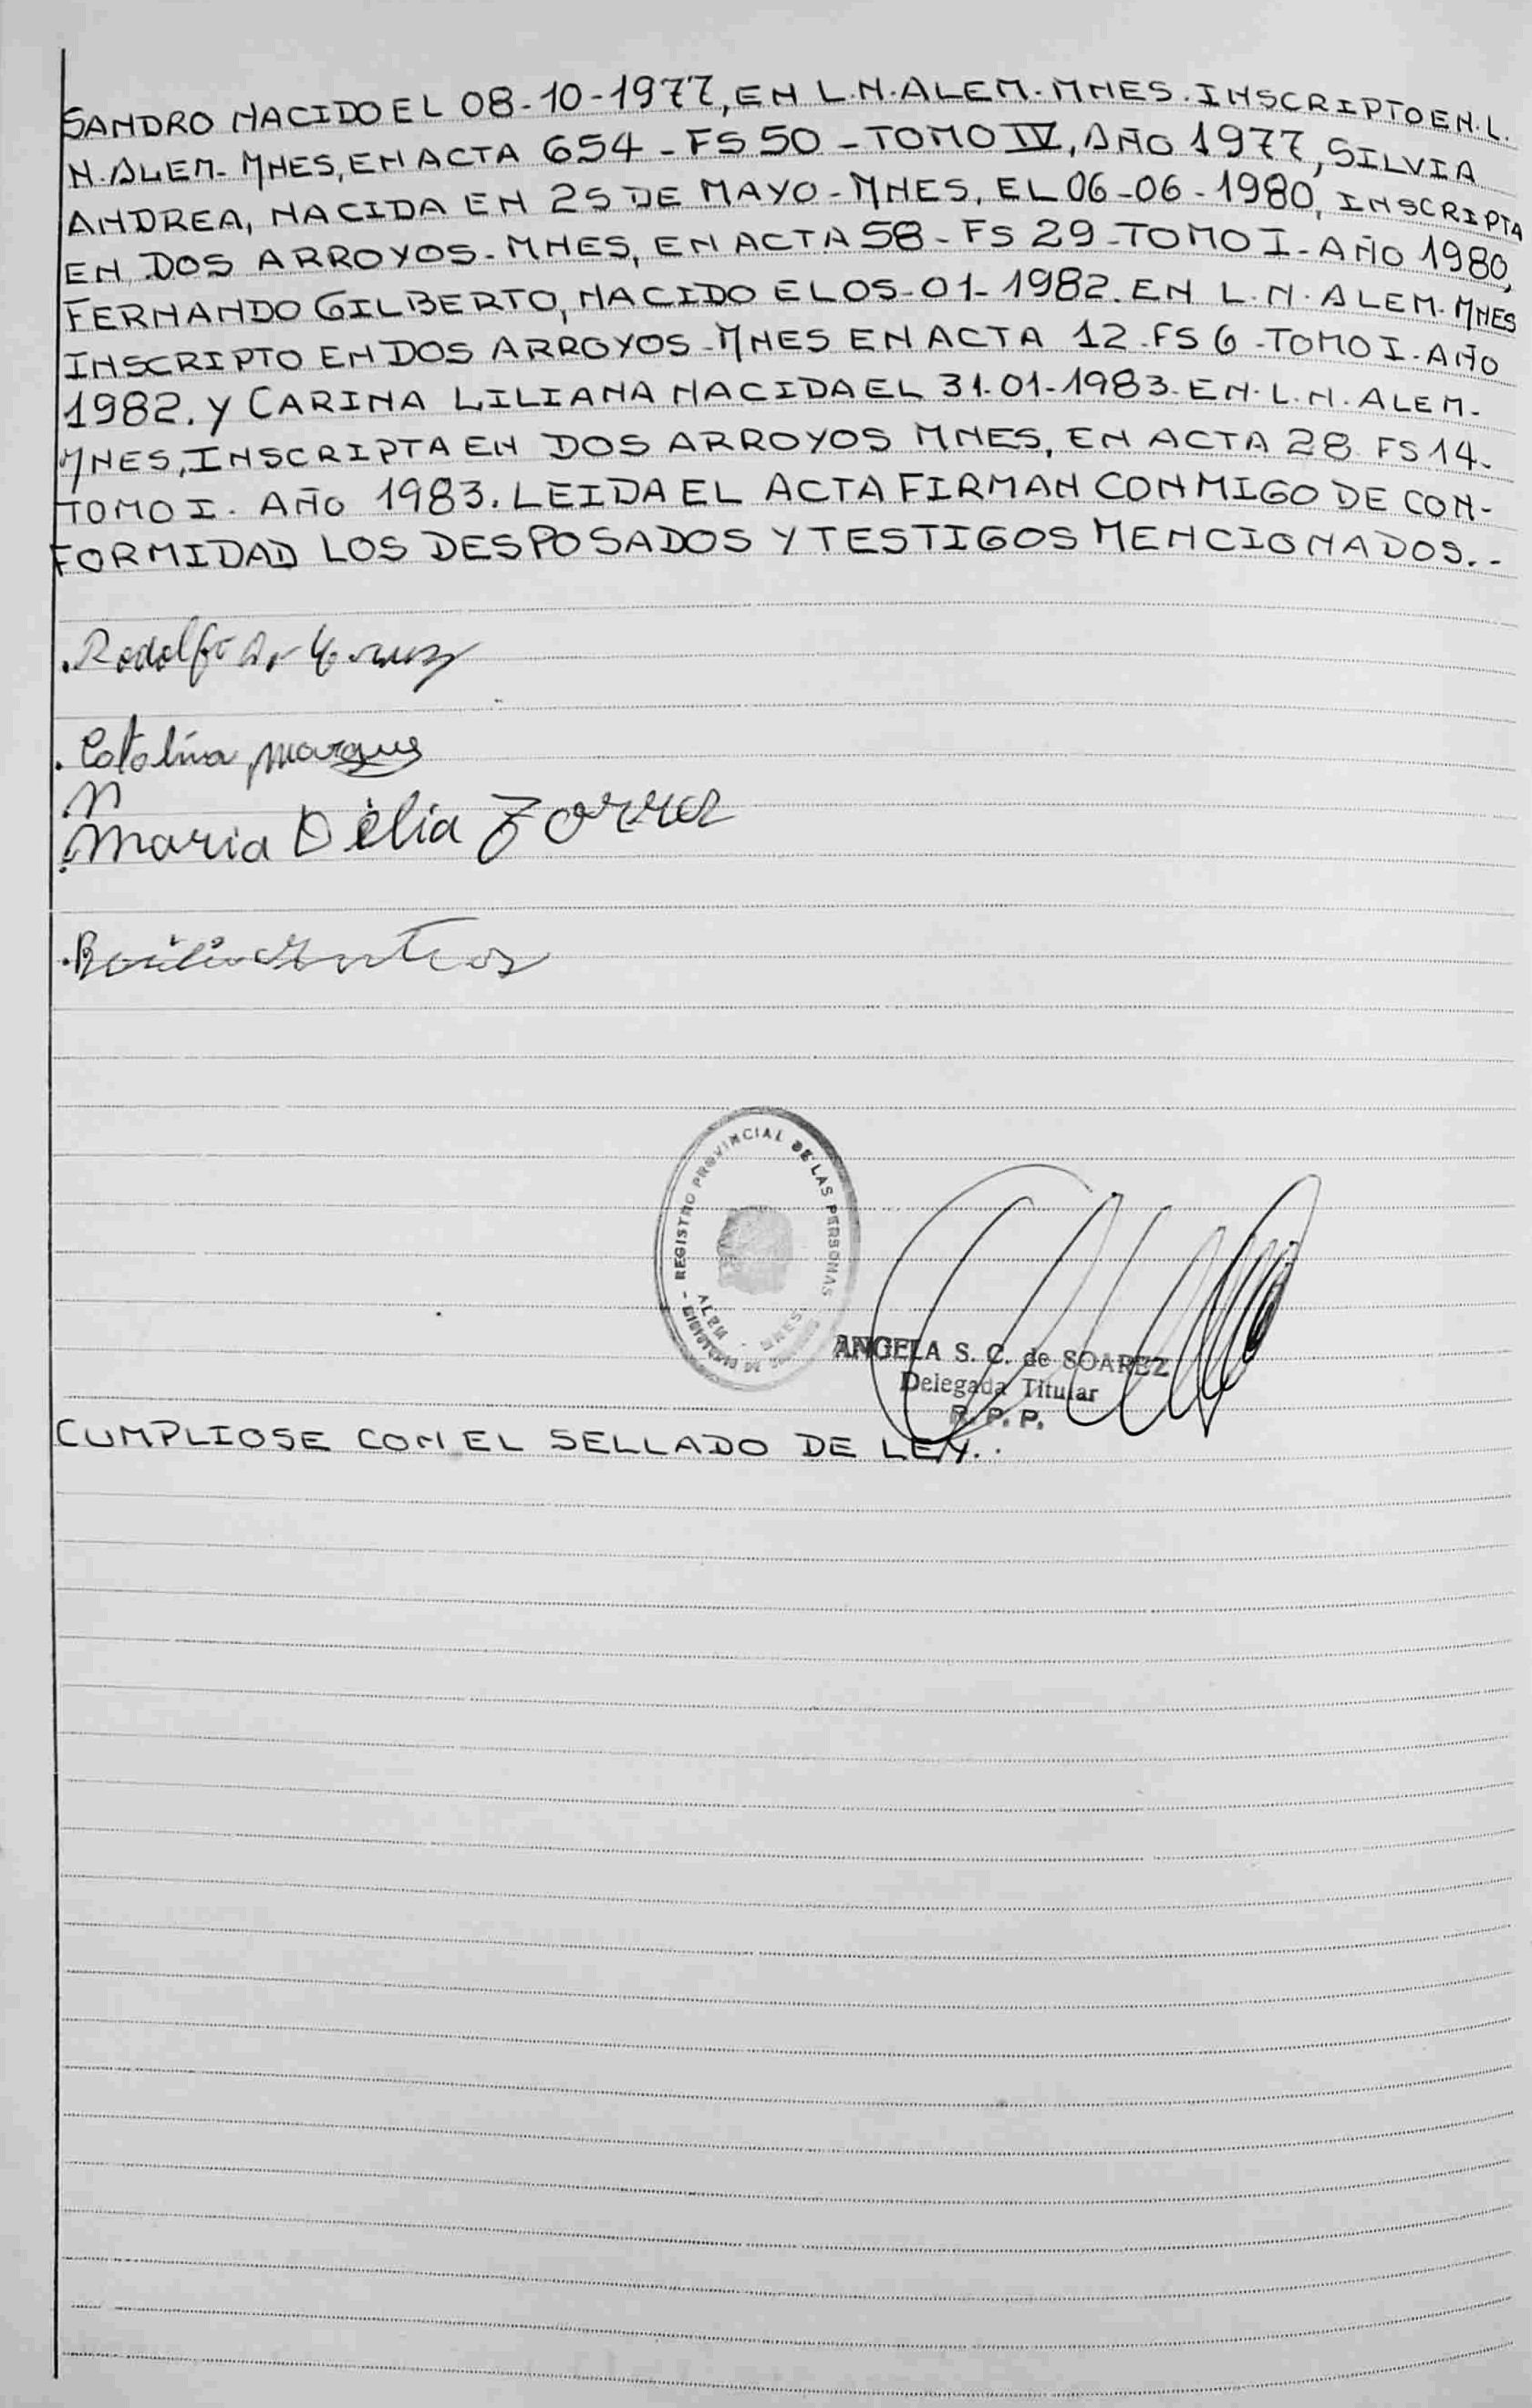 SANDRO NACIDO EL 08-10-1977, EN L.N. ALEM. MNES. INSCRIPTO EN. L.
N. ALEM- MNES, EN ACTA 654 - FS 50 - TOMO IV, AÑO 1977, SILVIA
ANDREA, NACIDA EN 25 DE MAYO - MNES, EL 06-06-1980, INSCRIPTA
EN DOS ARROYOS - MNES, EN ACTA 58 - FS 29 - TOMO I - AÑO 1980,
FERNANDO GILBERTO, NACIDO EL 05-01-1982. EN L.N. ALEM. MNES
INSCRIPTO EN DOS ARROYOS - MNES EN ACTA 12 - FS 6 - TOMO I - AÑO
1982. Y CARINA LILIANA NACIDA EL 31.01-1983. EN. L.N. ALEM-
MNES, INSCRIPTA EN DOS ARROYOS MNES, EN ACTA 28 FS 14-
TOMO I. AÑO 1983. LEIDA EL ACTA FIRMAN CONMIGO DE CON-
FORMIDAD LOS DESPOSADOS Y TESTIGOS MENCIONADOS. -
Rodolfo
Catalina
Maria Délia Zorra
REGISTRO PROVINCIAL DE LAS PERSONAS
ALEM - MNES
ANGELA S. C. de SOAREZ
Delegada Titular
R. P. P.
CUMPLIOSE CON EL SELLADO DE LEY. .